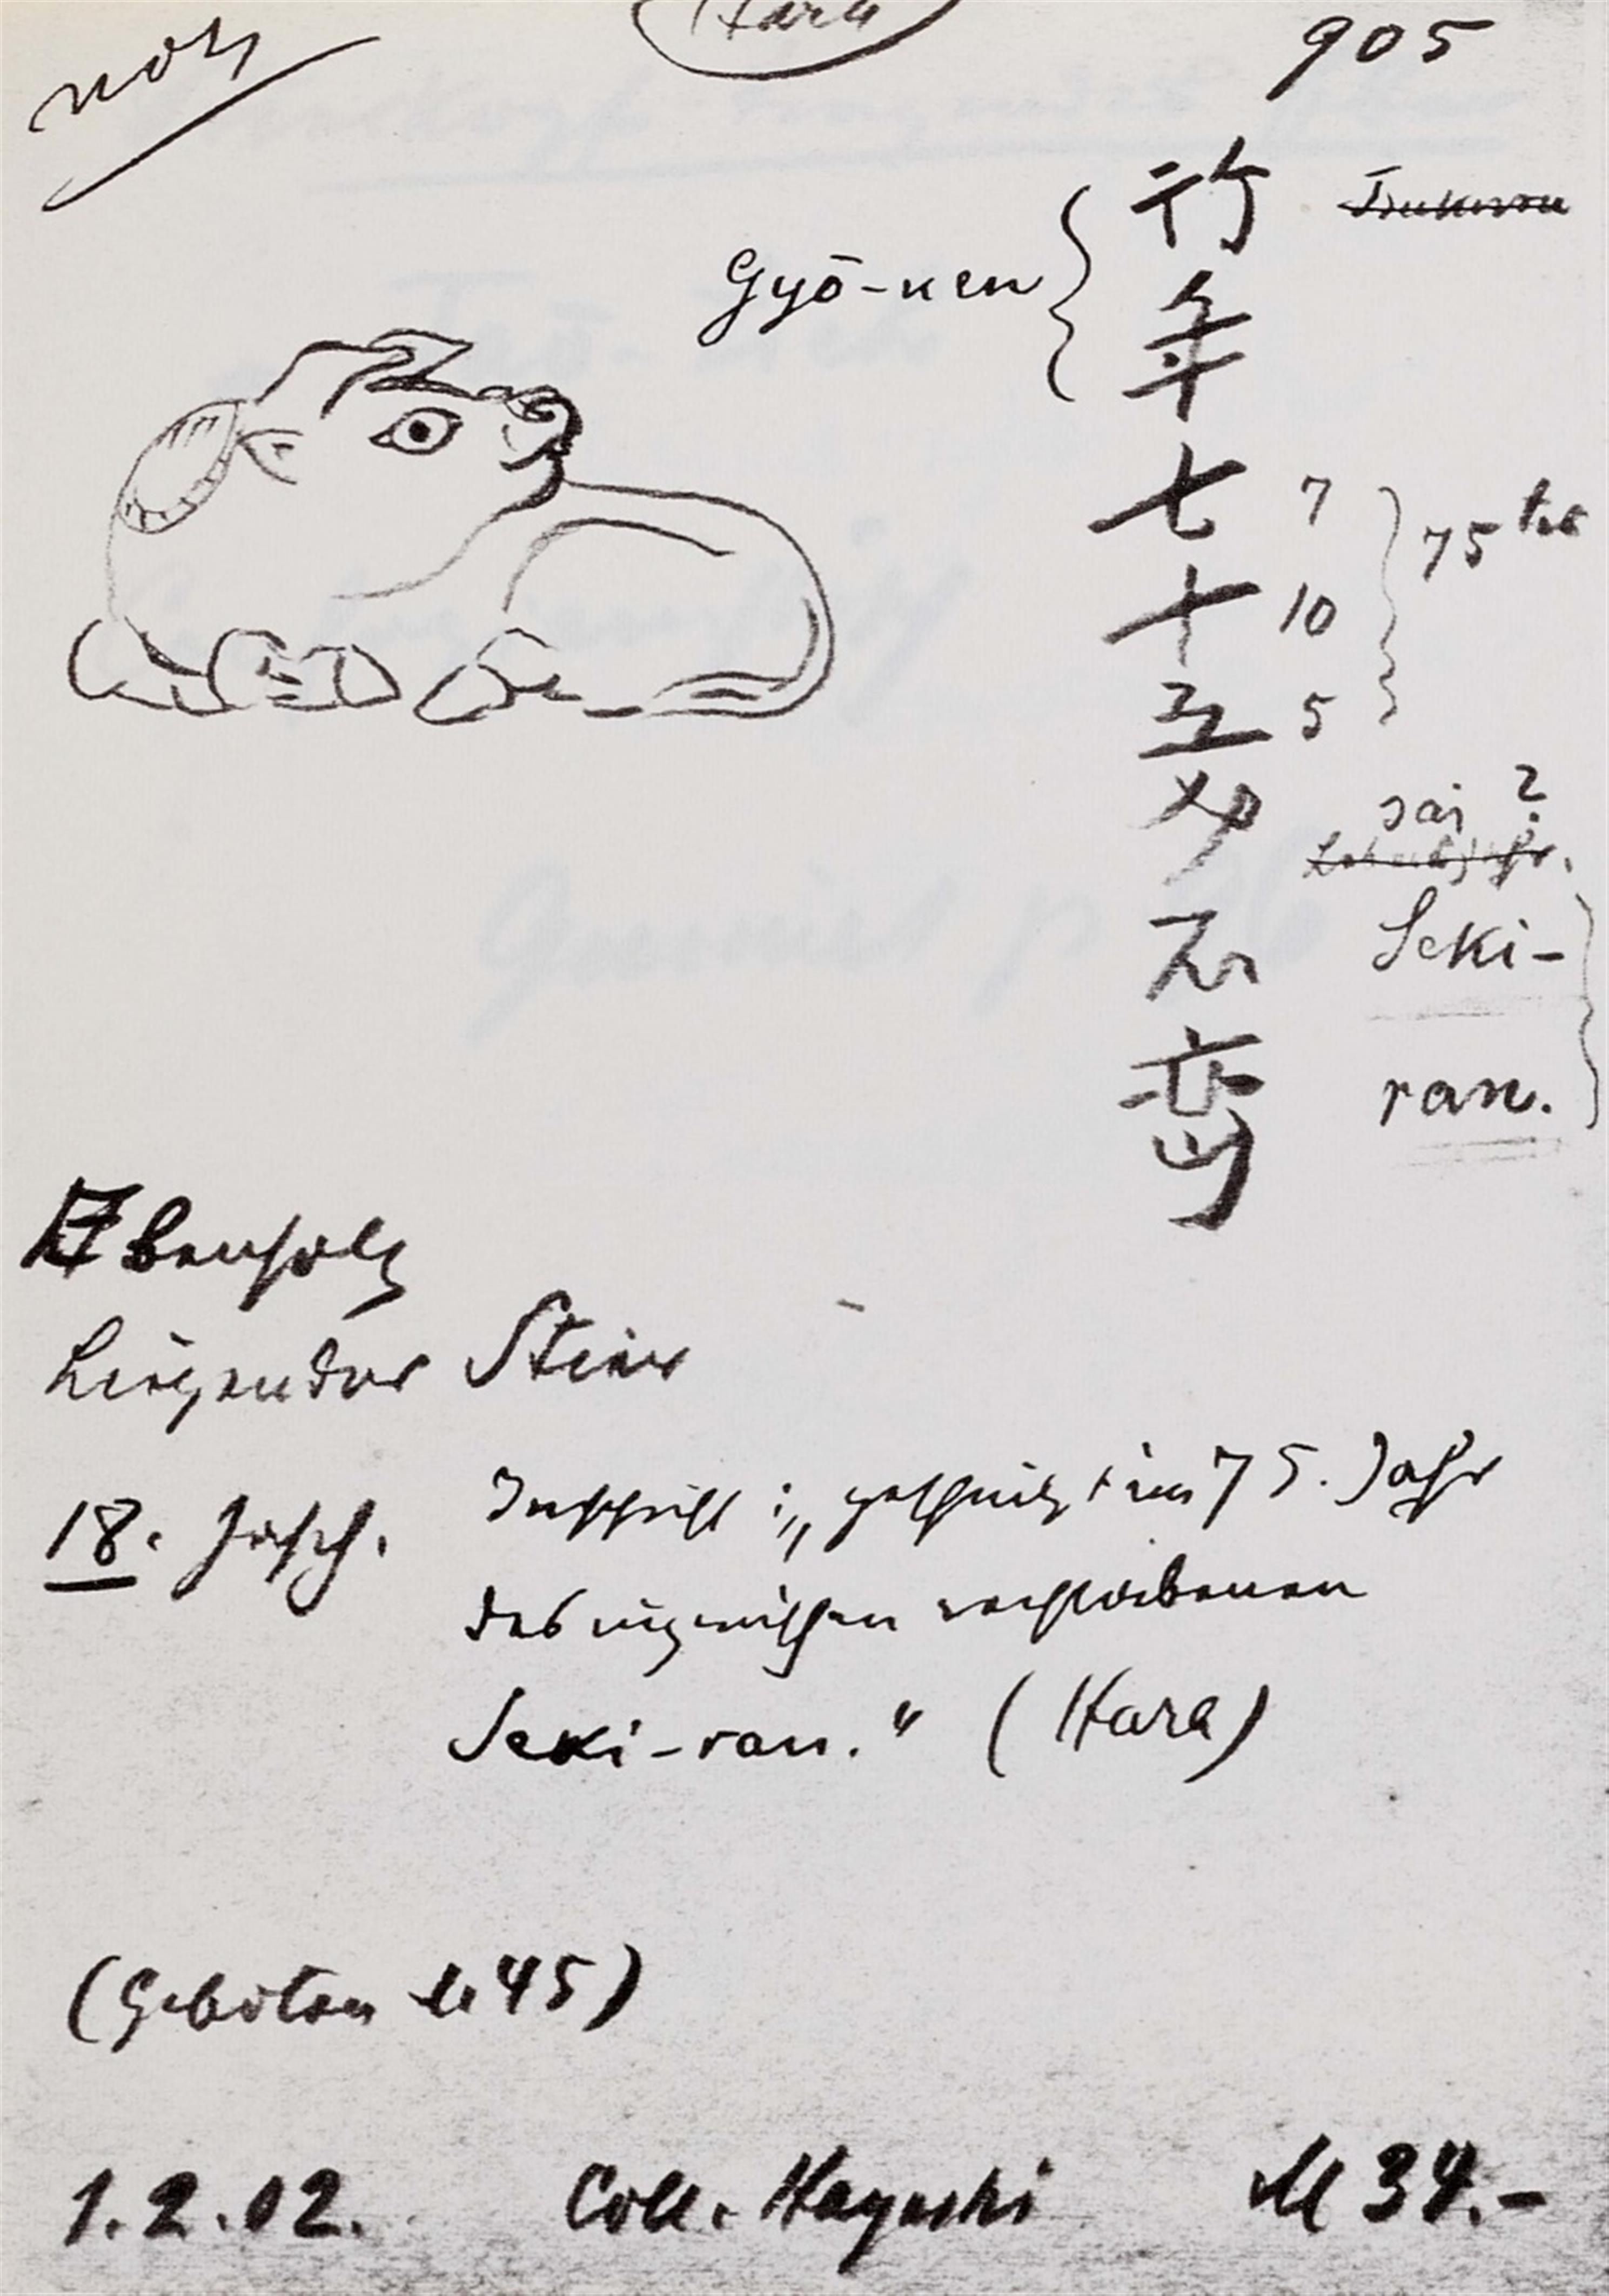 Holz
Hara
905
竹 Tsukuru
Gyō-nen
年
七 7
十 10
五 5
75 tes
歳 sai ?
石 Seki-
巒 ran.
Ebenholz
Liegender Stier
18. Jahrh.
Inschrift: „geschnitzt im 75. Jahr
des inzwischen verstorbenen
Seki-ran.“ (Hara)
(Geboten M 45)
1.2.02. Coll. Hayashi M 34.-